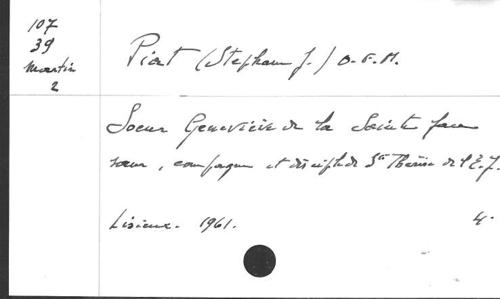 107
39
Martin
2
Piat (Stéphane J.) O.F.M.
Soeur Geneviève de la Sainte face
soeur, compagne et disciple de Ste Thérèse de l'E.J.
Lisieux. 1961. 4°